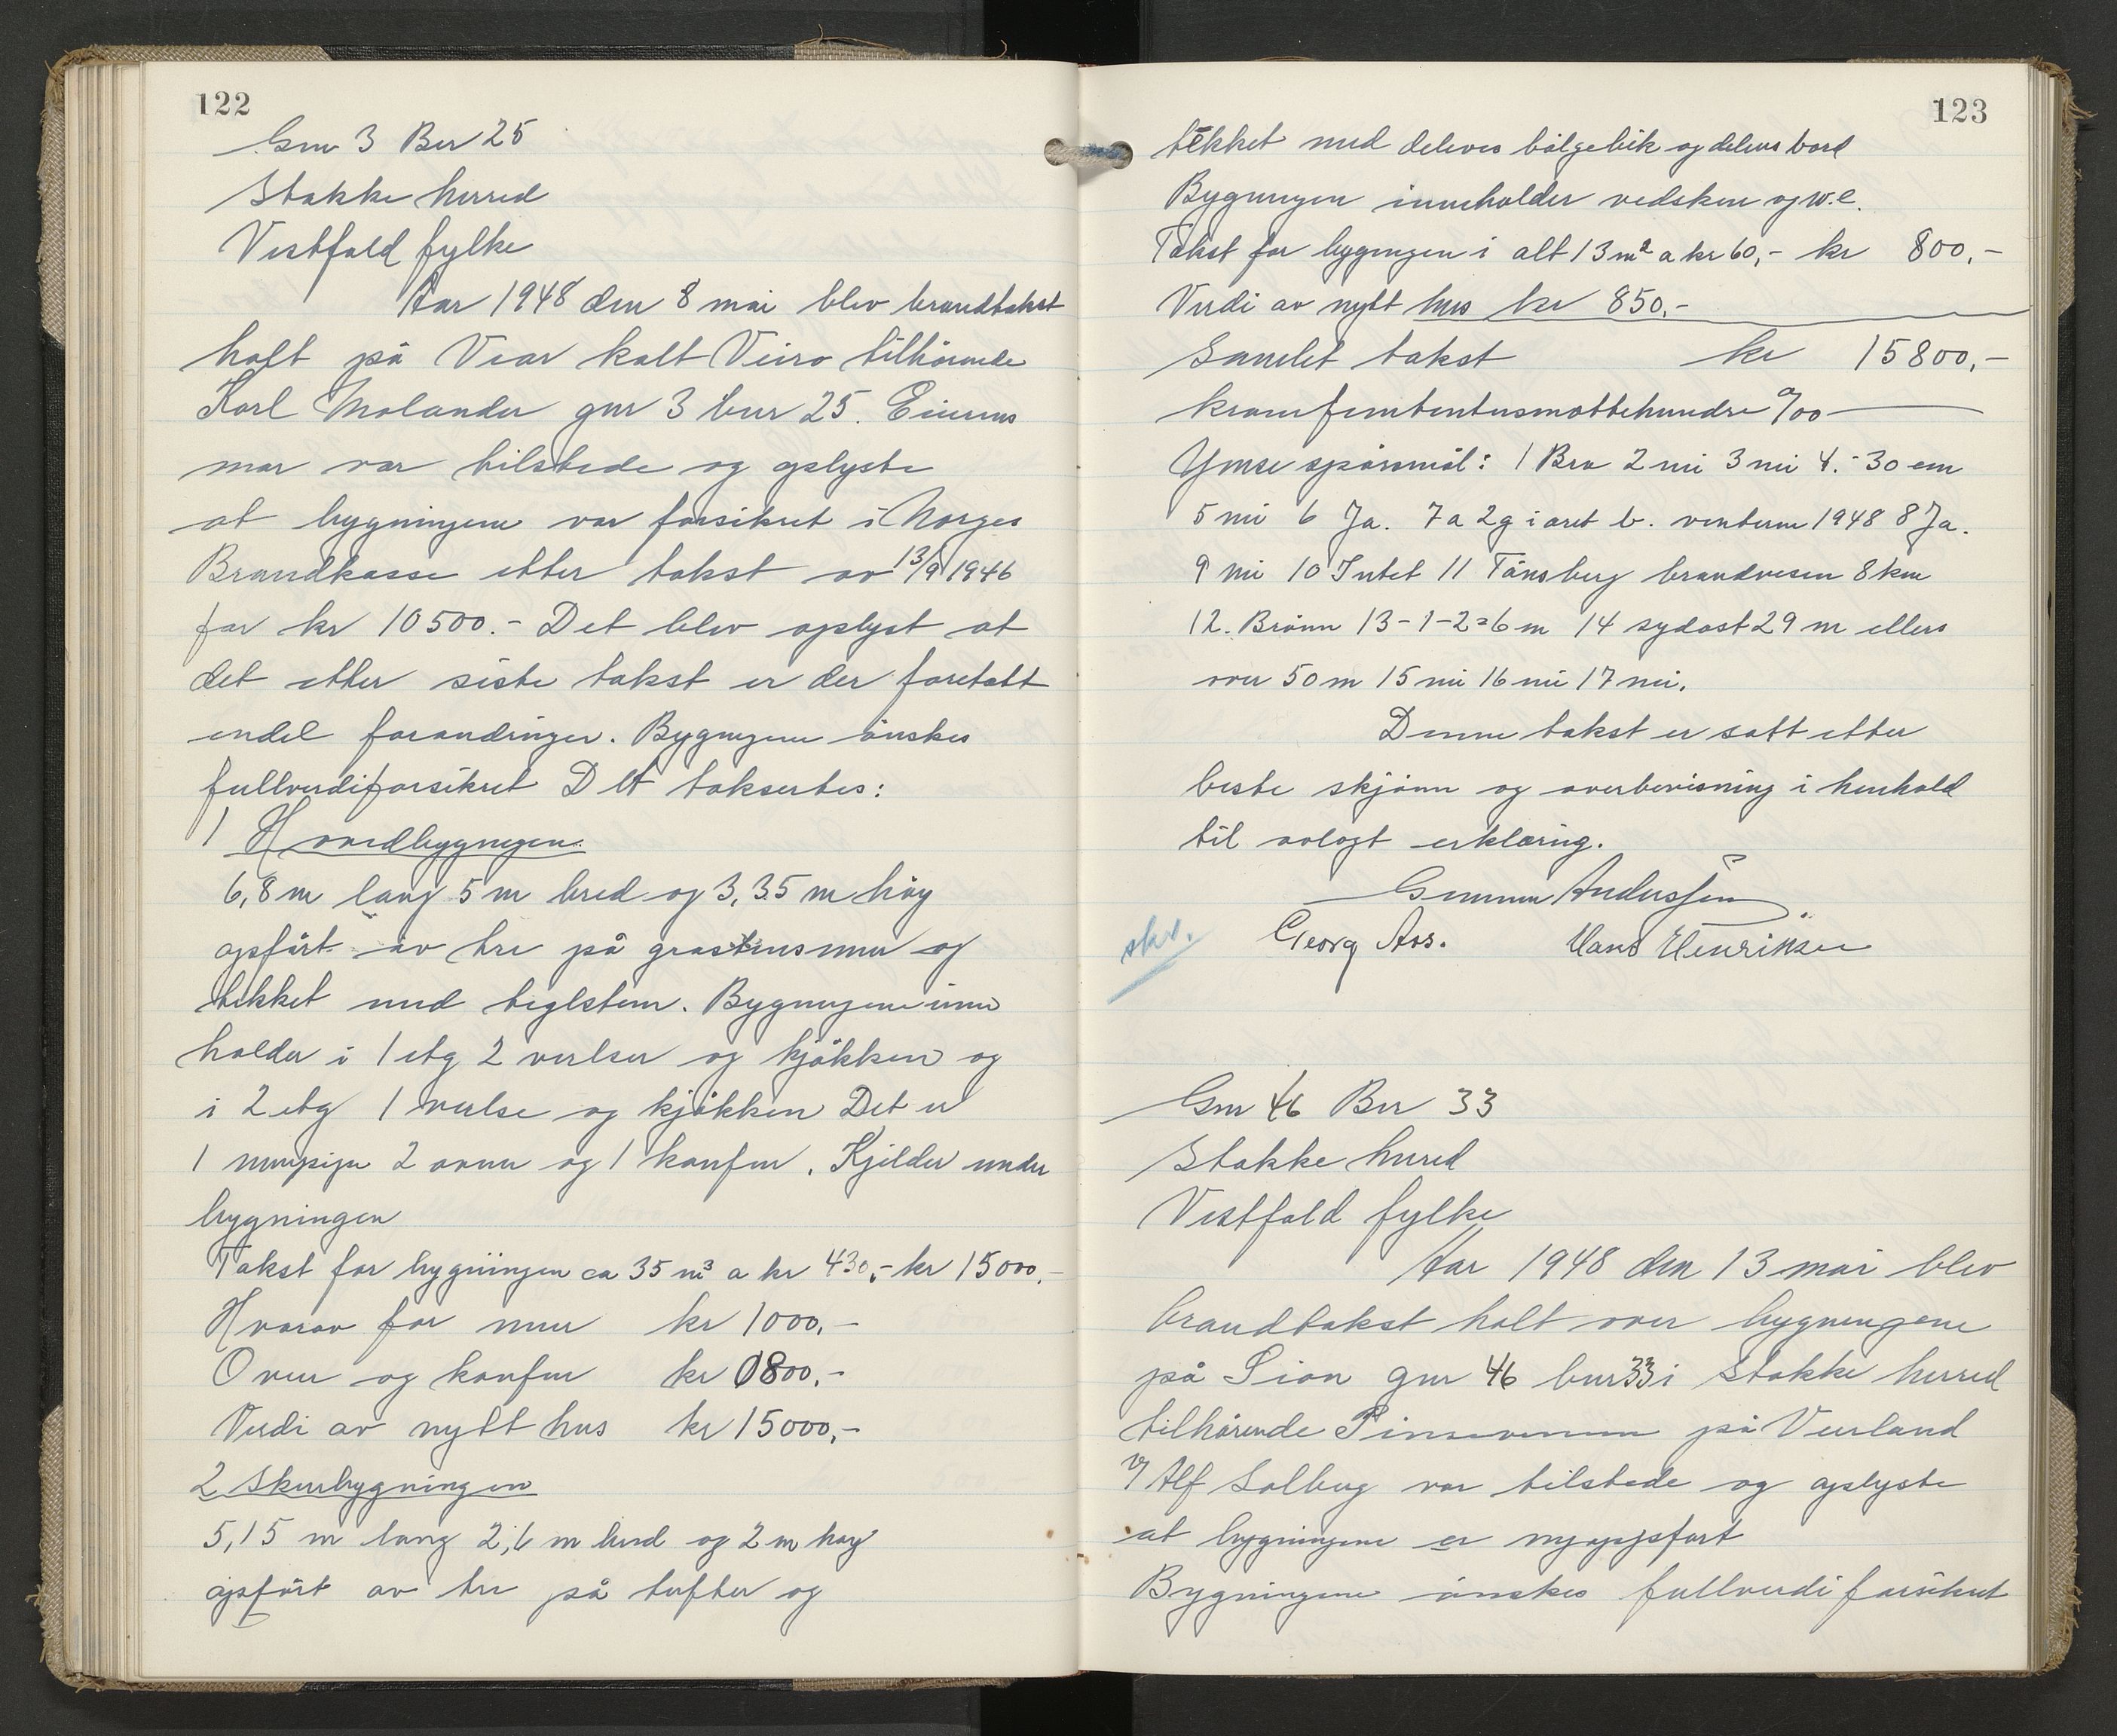 122
Gnr 3 Bnr 25
Stokke herred
Vestfold fylke
Aar 1948 den 8 mai blev brandtakst
holt på Vear kalt Veiro tilhörende
Karl Molander gnr 3 bnr 25. Eierens
mor var tilstede og oplyste
at bygningene var forsikret i Norges
Brandkasse etter takst av 13/9 1946
for kr 10500.- Det blev oplyst at
det etter siste takst er der foretatt
endel forandringer. Bygngene önskes
fullverdiforsikret Det taksertes:
1 Hovedbygngen.
6,8 m lang 5 m bred og 3,35 m höy
opfört av tre på grastensmur og
tekket med teglsten. Bygngene inne
holder i 1 etg 2 verlser og kjökken og
i 2 etg 1 verlse og kjökken Det er
1 murpipe 2 ovner og 1 komfur. Kjelder under
bygningen
Takst for bygningen ca 35 m³ a kr 430,- kr 15000,-
Hvorav for mur kr 1000,-
Ovner og komfur kr 0800,-
Verdi av nytt hus kr 15000,-
2 Skurbygningen
5,15 m lang 2,6 m bred og 2 m hoy
opfört av tre på tufter og
123
tekket med deleves bölgeblik og delevs bord
Bygngen inneholder vedskur og w.c.
Takst for bygngen i alt 13 m² a kr 60,- kr 800,-
Verdi av nytt hus kr 850.-
Samlet takst kr 15800,-
kronerfemtentusenottehundre 0/00
Ymse spörsmål: 1 Bra 2 nei 3 nei 4.- 30 cm
5 nei 6 Ja. 7a 2g i aret b. venteren 1948 8 Ja.
9 nei 10 Intet 11 Tönsberg brandvesen 8 km
12. Brönn 13-1-2=6 m 14 sydost 29 m ellers
over 50 m 15 nei 16 nei 17 nei.
Denne takst er satt etter
beste skjönn og overbevisning i henhold
til avlagt erklæring.
Gunnar Anderssen
skr. Georg Ass. Hans Henriksen
Gnr 46 Bnr 33
Stokke herred
Vestfold fylke
Aar 1948 den 13 mai blev
brandtakst holt over bygningene
på Sion gnr 46 bnr 33 i Stokke herred
tilhörende Pinsevennene på Veierland
v/ Alf Solberg var tilstede og oplyste
at bygningene er nyoppfort
Bygningene önskes fullverdi forsikret